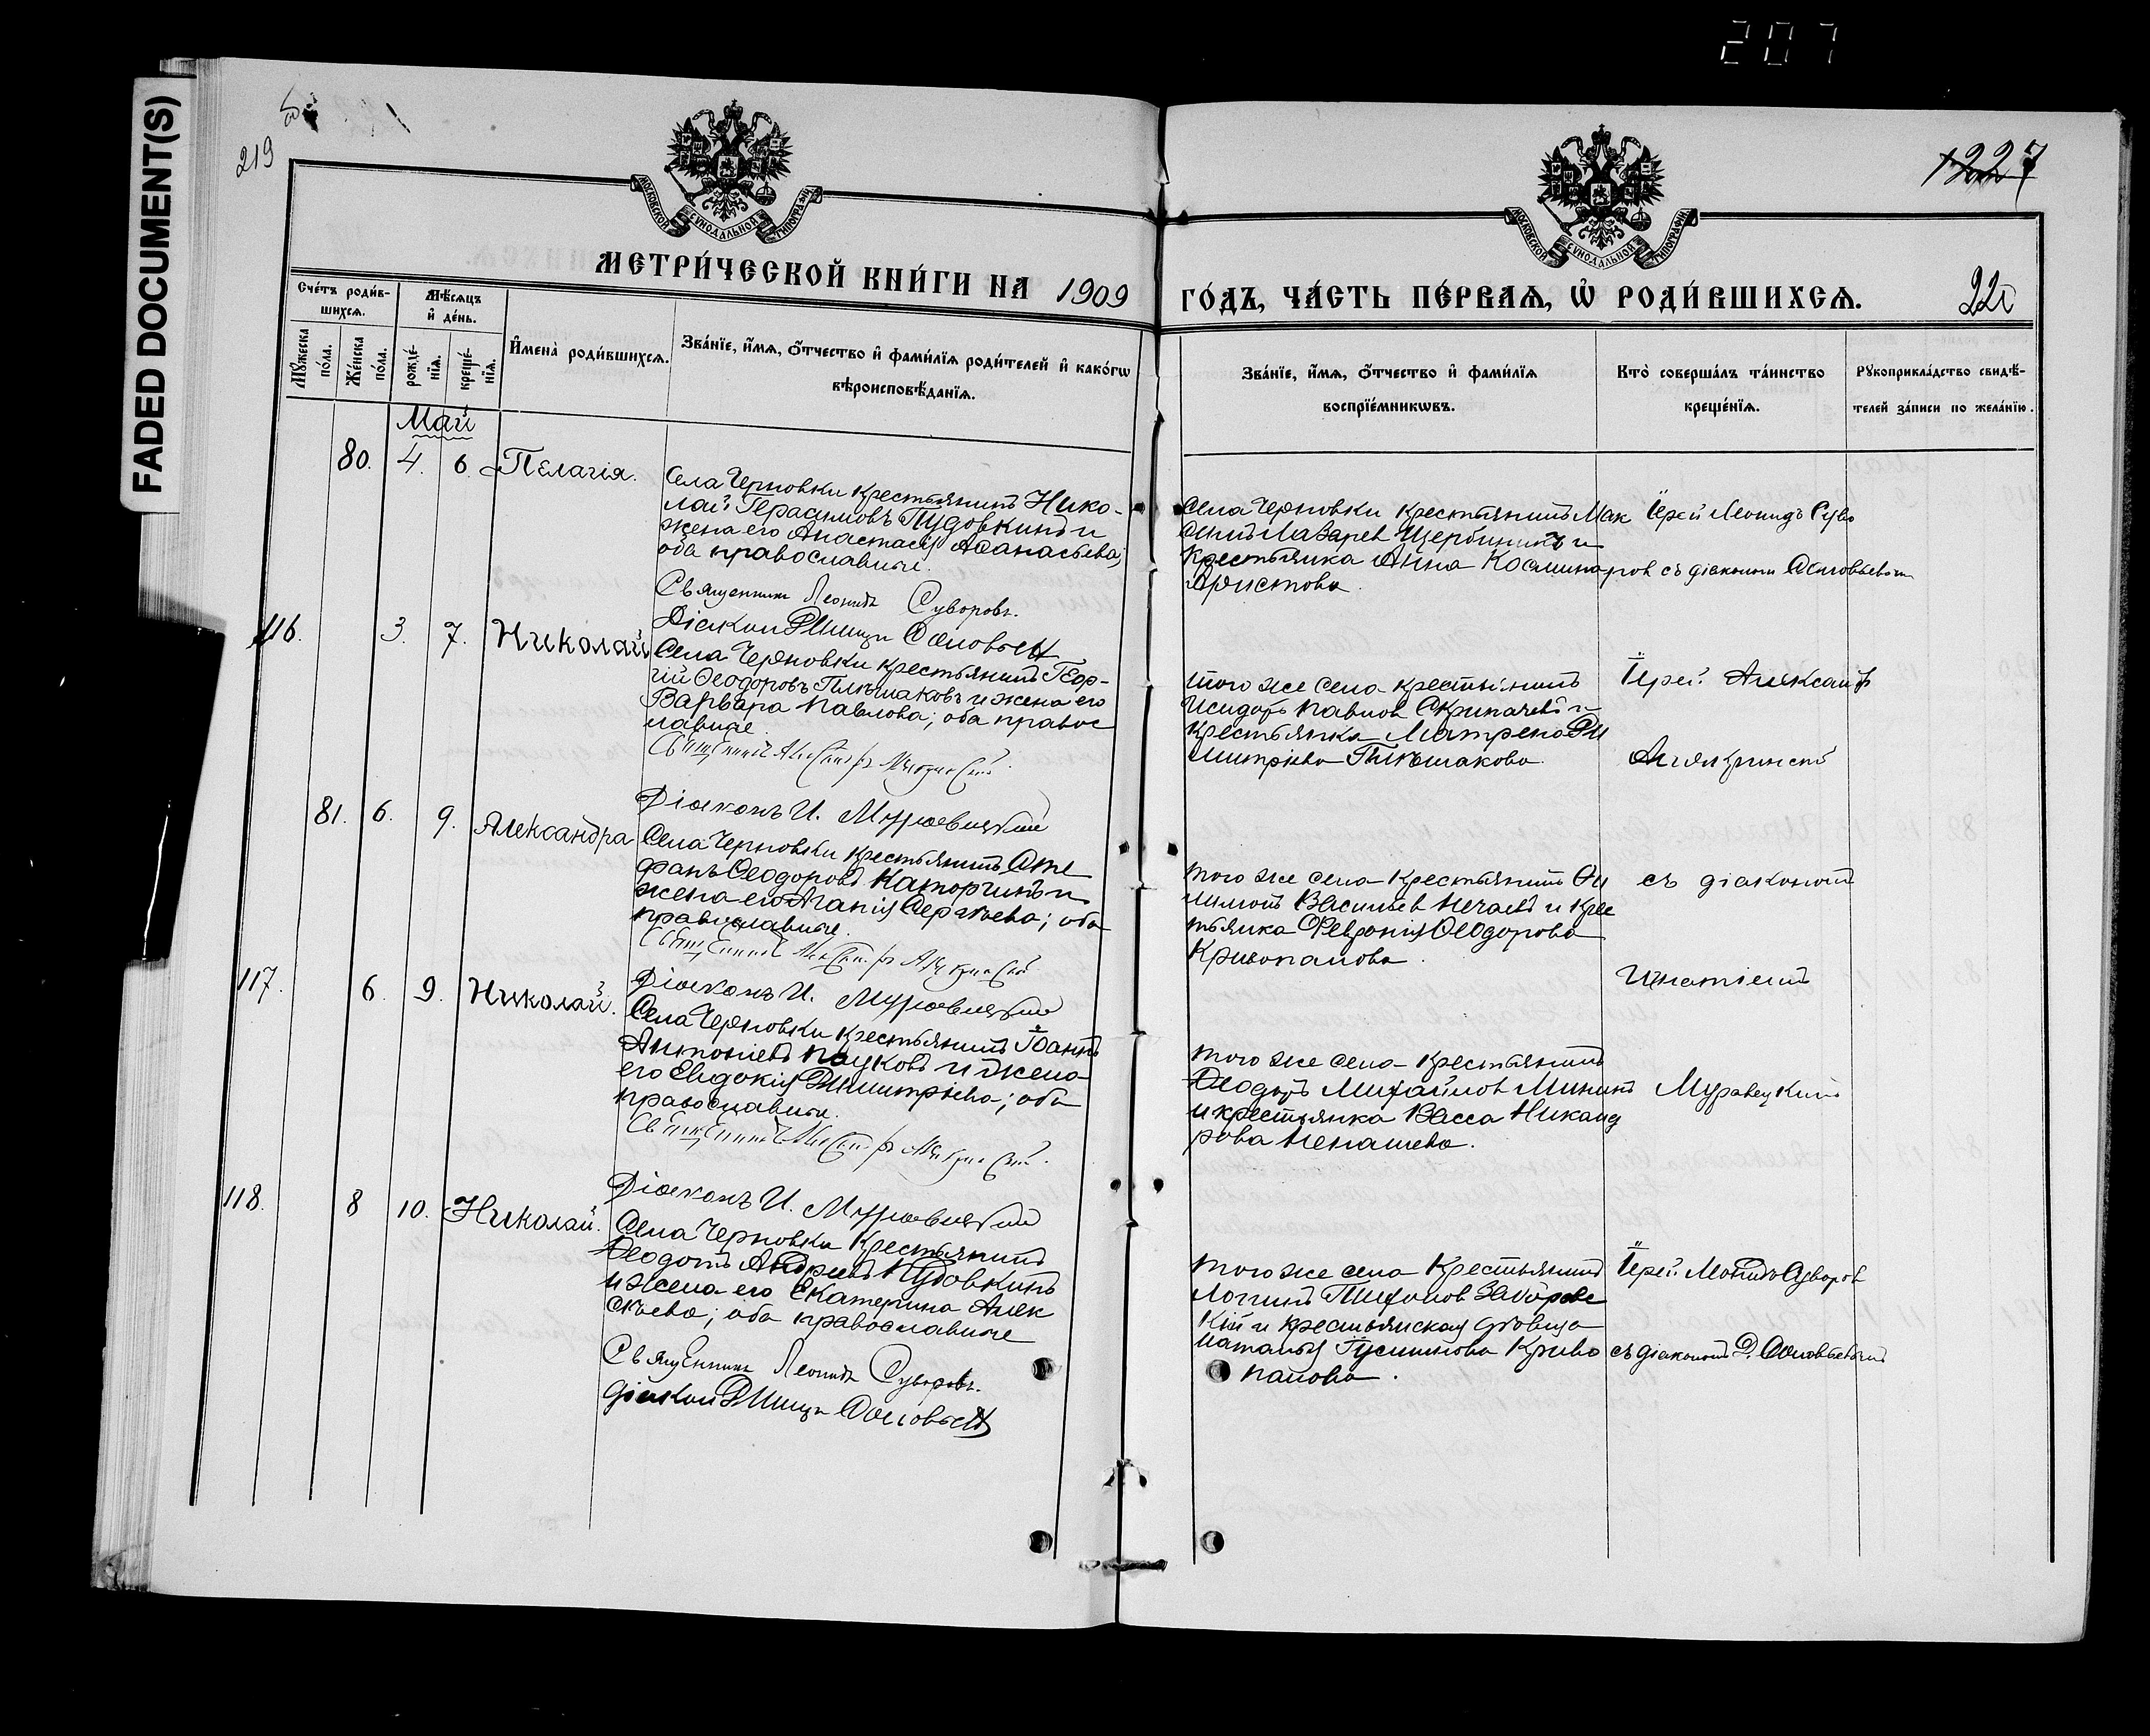 207
FADED DOCUMENT(S)
219
1227
220
МОСКОВСКОЙ СѴНОДАЛЬНОЙ ТИПОГРАФІИ
МОСКОВСКОЙ СѴНОДАЛЬНОЙ ТИПОГРАФІИ
МЕТРИ́ЧЕСКОЙ КНИ́ГИ НА 1909 ГО́ДЪ, ЧА́СТЬ ПЕ́РВАѦ, Ѡ҆ РОДИ́ВШИХСѦ.
Сче́тъ роди́в-
шихсѧ.
Мѣ́сѧцъ
и҆ де́нь.
Мꙋ́жеска
по́ла.
Же́нска
по́ла.
рожде́-
нїѧ.
креще́-
нїѧ.
И҆мена̀ роди́вшихсѧ.
Зва́нїе, и҆́мѧ, ѻ҆́тчество и҆ фами́лїѧ роди́телей и҆ како́гѡ
вѣроисповѣ́данїѧ.
Зва́нїе, и҆́мѧ, ѻ҆́тчество и҆ фами́лїѧ
воспрїе́мникѡвъ.
Кто̀ соверша́лъ та́инство
креще́нїѧ.
Рꙋкоприкла́дство свидѣ́-
телей за́писи по жела́нїю.
Май
80. 4. 6. Пелагія.
Села Черновки крестьянинъ Нико-
лай Герасимовъ Пудовкинъ и
жена его Анастасія Аѳанасьева;
оба православные.
Священникъ Леонидъ Суворовъ.
Діаконъ Димитр Соловьевъ
Села Черновки крестьянинъ Мак
симъ Лазарев Щербининъ и
крестьянка Анна Косминa
Аристова.
Іерей Леонидъ Суво
ров съ діакономъ Соловьевымъ
116. 3. 7. Николай
Села Черновки крестьянинъ Геор-
гій Ѳеодоровъ Плѣшаковъ и жена его
Варвара Павлова; оба правос
лавные.
Священникъ Александръ
Діаконъ И. Муравецкій
того же села крестьянинъ
Исидоръ Павлов Скрипачевъ и
крестьянка Матрена Ди
митріева Плѣшакова.
Іерей Александръ
81. 6. 9. Александра
Села Черновки крестьянинъ Сте
фанъ Ѳеодоровъ Каторгинъ и
жена его Агапія Сергѣева; оба
православные.
Священникъ Александръ
Діаконъ И. Муравецкій
того же села крестьянинъ Фи
лимонъ Васильев Нечаевъ и крес
тьянка Февронія Ѳеодорова
Кривопалова.
съ діакономъ
Игнатіемъ
117. 6. 9. Николай.
Села Черновки крестьянинъ Іоаннъ
Антоніевъ Пауковъ и жена
его Евдокія Димитріева; оба
православные.
Священникъ Александръ
Діаконъ И. Муравецкій
того же села крестьянинъ
Ѳеодоръ Михайлов Мининъ
и крестьянка Васса Никанд
рова Ненашева.
Муравецкимъ
118. 8 10. Николай.
Села Черновки крестьянинъ
Ѳеодотъ Андреевъ Пудовкинъ
и жена его Екатерина Алек
сѣева; оба православные
Священникъ Леонидъ Суворовъ.
діаконъ Димитр Соловьевъ
того же села крестьянинъ
Логинъ Тихонов Заборовс
кій и крестьянская дѣвица
Наталья Криво
палова.
Іерей Леонидъ Суворов
съ діакономъ Д. Соловьевымъ